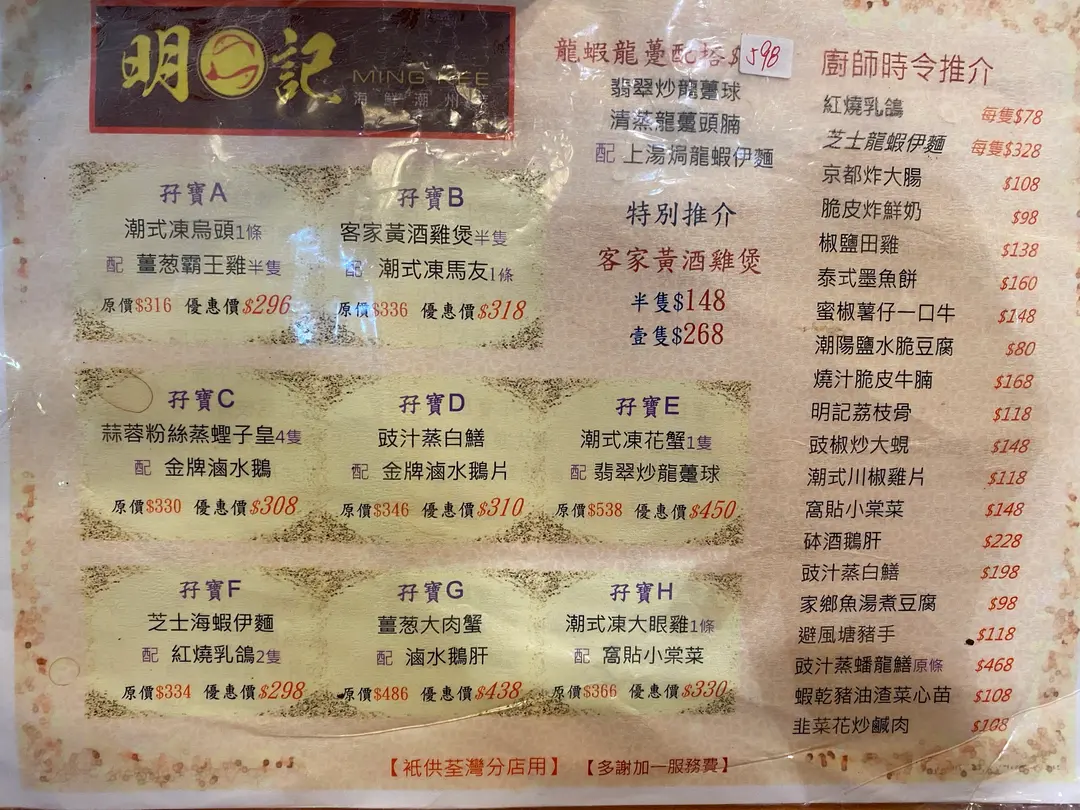 明記
MING KEE
海鮮潮州
孖寶A
潮式凍烏頭1條
配 薑葱霸王雞半隻
原價$316 優惠價$296
孖寶B
客家黃酒雞煲半隻
配 潮式凍馬友1條
原價$336 優惠價$318
龍蝦龍躉配塔$598
翡翠炒龍躉球
清蒸龍躉頭腩
配 上湯焗龍蝦伊麵
特別推介
客家黃酒雞煲
半隻$148
壹隻$268
孖寶C
蒜蓉粉絲蒸蟶子皇4隻
配 金牌滷水鵝
原價$330 優惠價$308
孖寶D
豉汁蒸白鱔
配 金牌滷水鵝片
原價$346 優惠價$310
孖寶E
潮式凍花蟹1隻
配 翡翠炒龍躉球
原價$538 優惠價$450
孖寶F
芝士海蝦伊麵
配 紅燒乳鴿2隻
原價$334 優惠價$298
孖寶G
薑葱大肉蟹
配 滷水鵝肝
原價$486 優惠價$438
孖寶H
潮式凍大眼雞1條
配 窩貼小棠菜
原價$366 優惠價$330
廚師時令推介
紅燒乳鴿 每隻$78
芝士龍蝦伊麵 每隻$328
京都炸大腸 $108
脆皮炸鮮奶 $98
椒鹽田雞 $138
泰式墨魚餅 $160
蜜椒薯仔一口牛 $148
潮陽鹽水脆豆腐 $80
燒汁脆皮牛腩 $168
明記荔枝骨 $118
豉椒炒大蜆 $148
潮式川椒雞片 $118
窩貼小棠菜 $148
砵酒鵝肝 $228
豉汁蒸白鱔 $198
家鄉魚湯煮豆腐 $98
避風塘豬手 $118
豉汁蒸蟠龍鱔原條 $468
蝦乾豬油渣菜心苗 $108
韭菜花炒鹹肉 $108
【衹供荃灣分店用】 【多謝加一服務費】